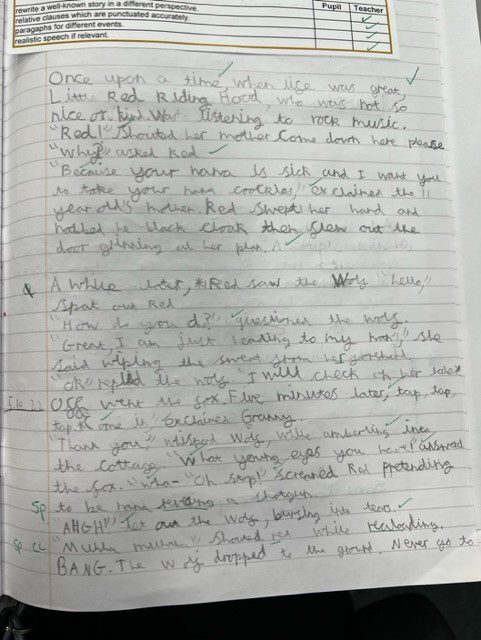 rewrite a well-known story in a different perspective.
Pupil Teacher
relative clauses which are punctuated accurately.
paragaphs for different events.
realistic speech if relevant.
Once upon a time, when life was great,
Little Red Riding Hood, who was not so
nice or kind. Was listening to rock music.
"Red!" shouted her mother Come down here please
"Why?" asked Red
"Because your nana is sick and I want you
to take your nana cookies," exclaimed the 11
year old's mother. Red swept her hand and
he black cloak then flew out the
door grinning at her plan.
A while later, Red saw the Wolf "hello,"
Spat out Red
"How do you do?" questioned the wolf.
"Great, I am just heading to my nans," she
said wiping the sweat from her forehead.
"Ok" replid the wolf "I will check on her later"
Off went the fox. Five minutes later, tap, tap,
tap. "Come in" exclaimed Granny.
"Thank you," whisperd Wolf, while into
the cottage. "What young eyes you have!
the fox. "wha- "Oh stop!" screamed Red pretending
Sp to be nana a shotgun.
"AHGH" let out the Wolf, bursing into tears.
Sp "Mwhha " shouted red while realoading.
BANG. The wolf dropped to the ground. Never go to